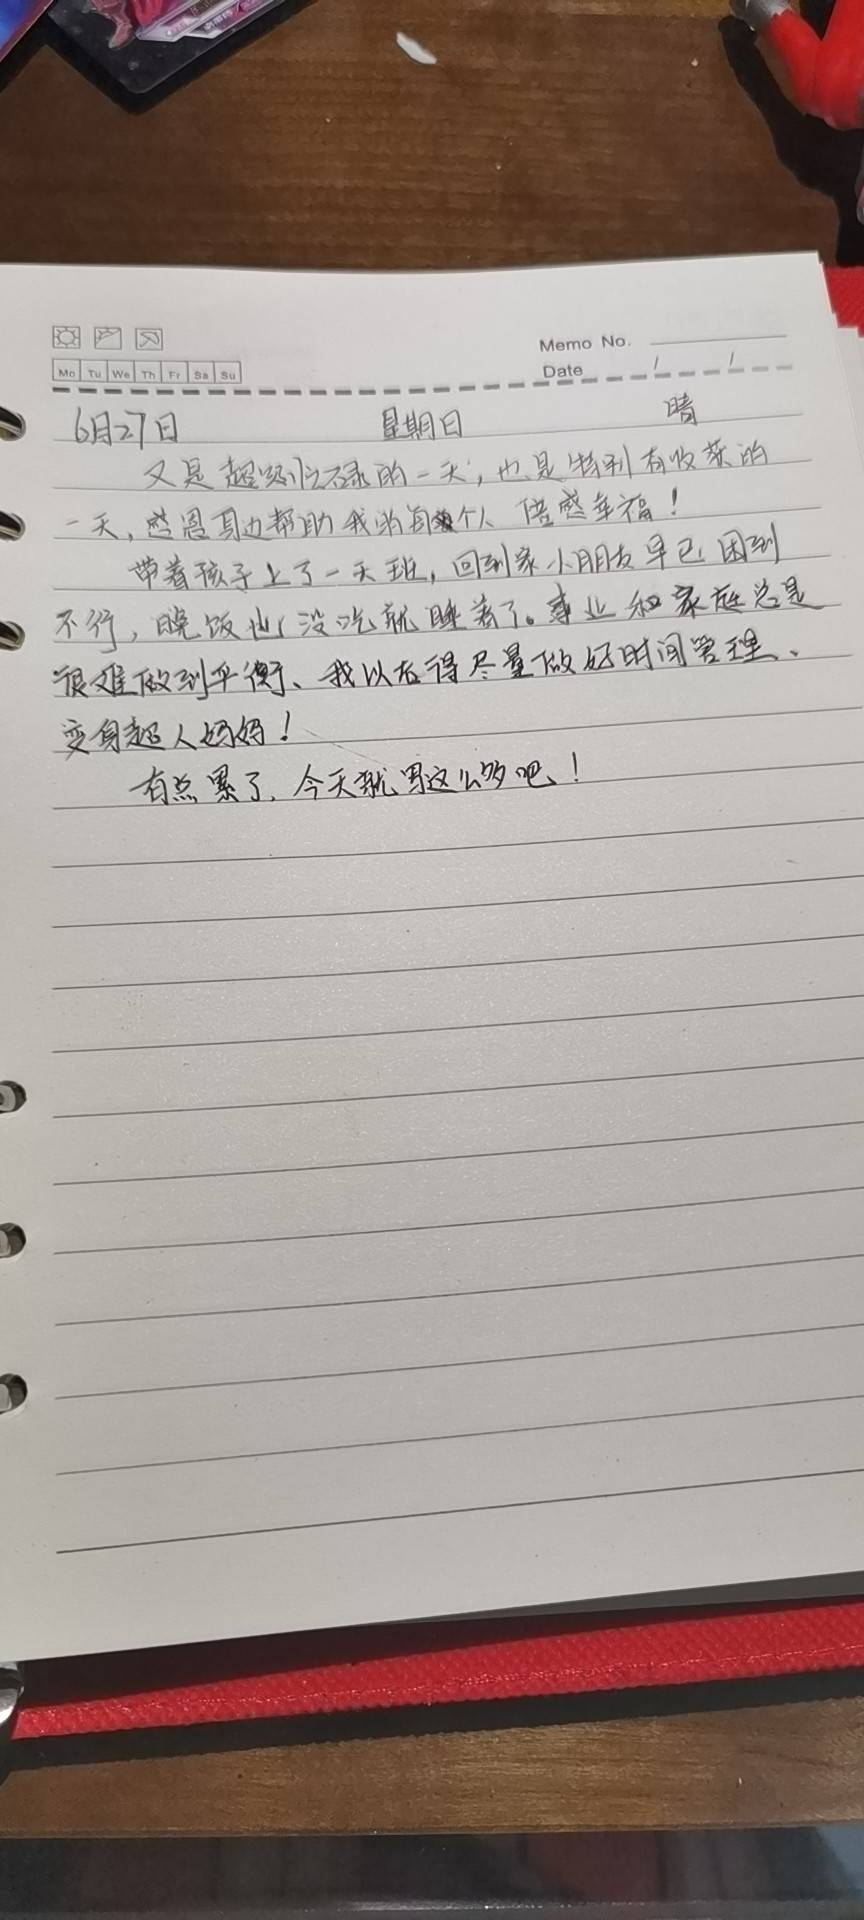 Memo No.
Mo Tu We Th Fr Sa Su
Date / /
6月27日 星期日 晴
又是超级忙碌的一天，也是特别有收获的
一天，感恩身边帮助我的每个人 倍感幸福！
带着孩子上了一天班，回到家小朋友早已困到
不行，晚饭也没吃就睡着了。事业和家庭总是
很难做到平衡、我以后得尽量做好时间管理、
变身超人妈妈！
有点累了，今天就写这么多吧！